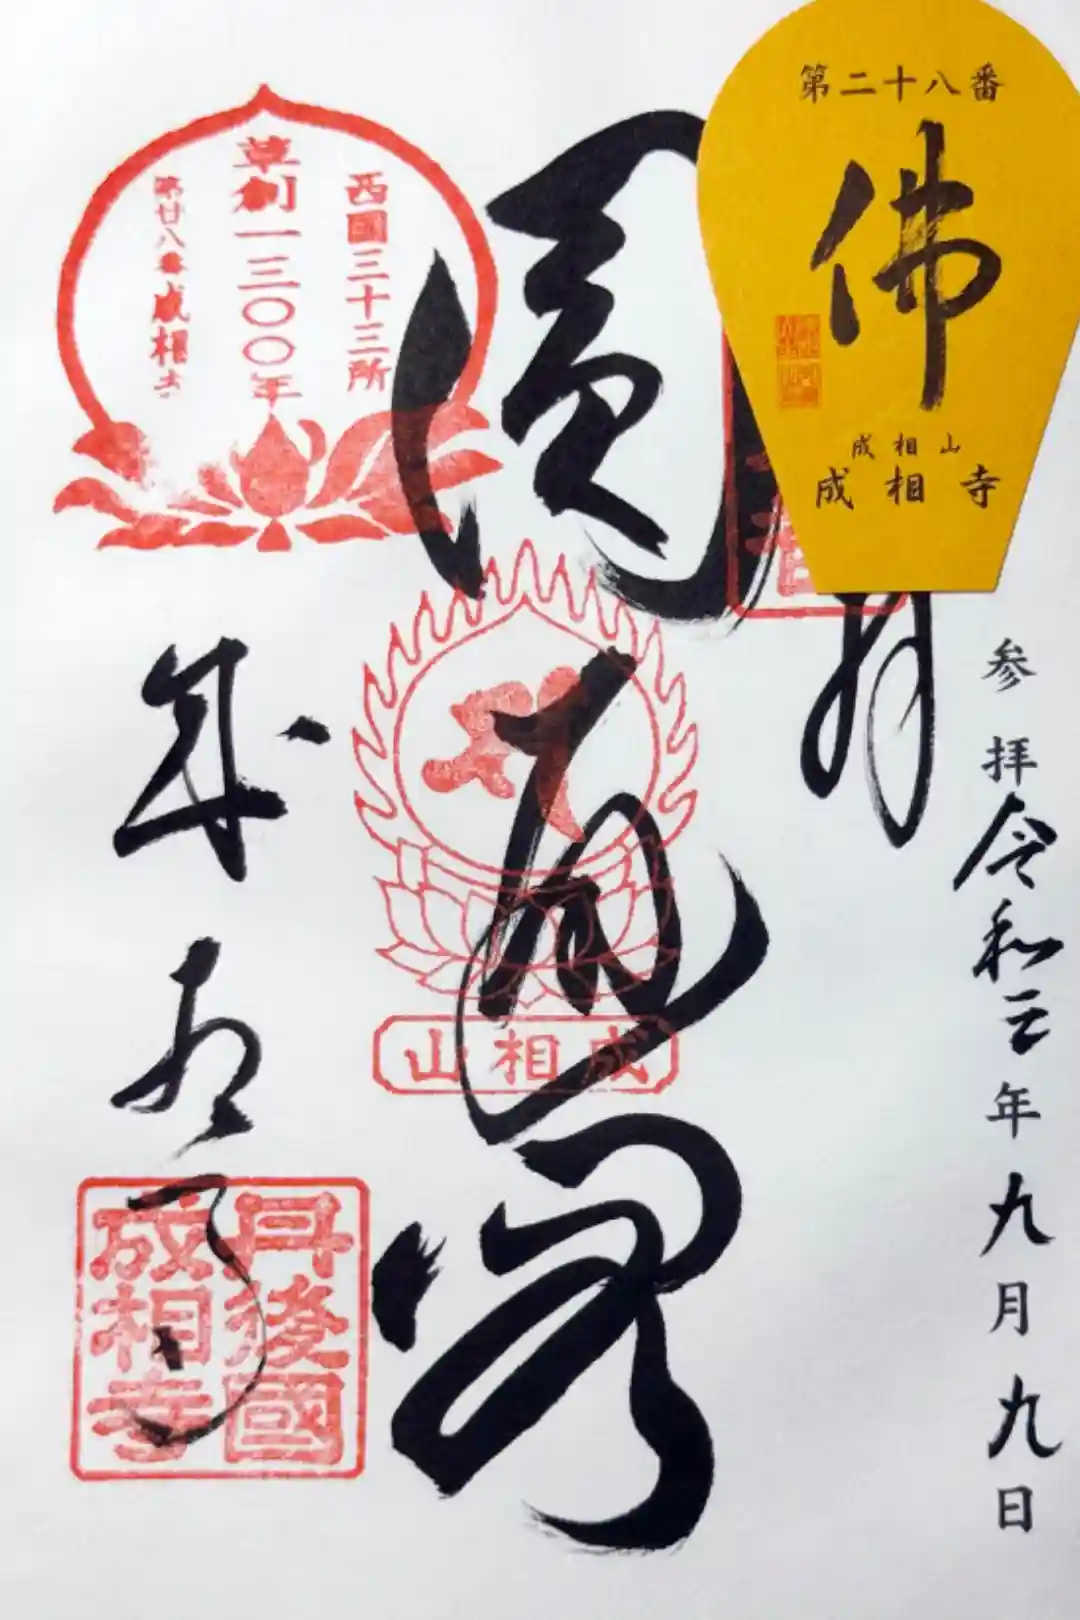 第二十八番
佛
成相山
成相寺
参拝令和三年九月九日
月
圓通閣
西国三十三所
草創一三〇〇年
第廿八番成相寺
成相山
成相寺
丹後國
成相寺